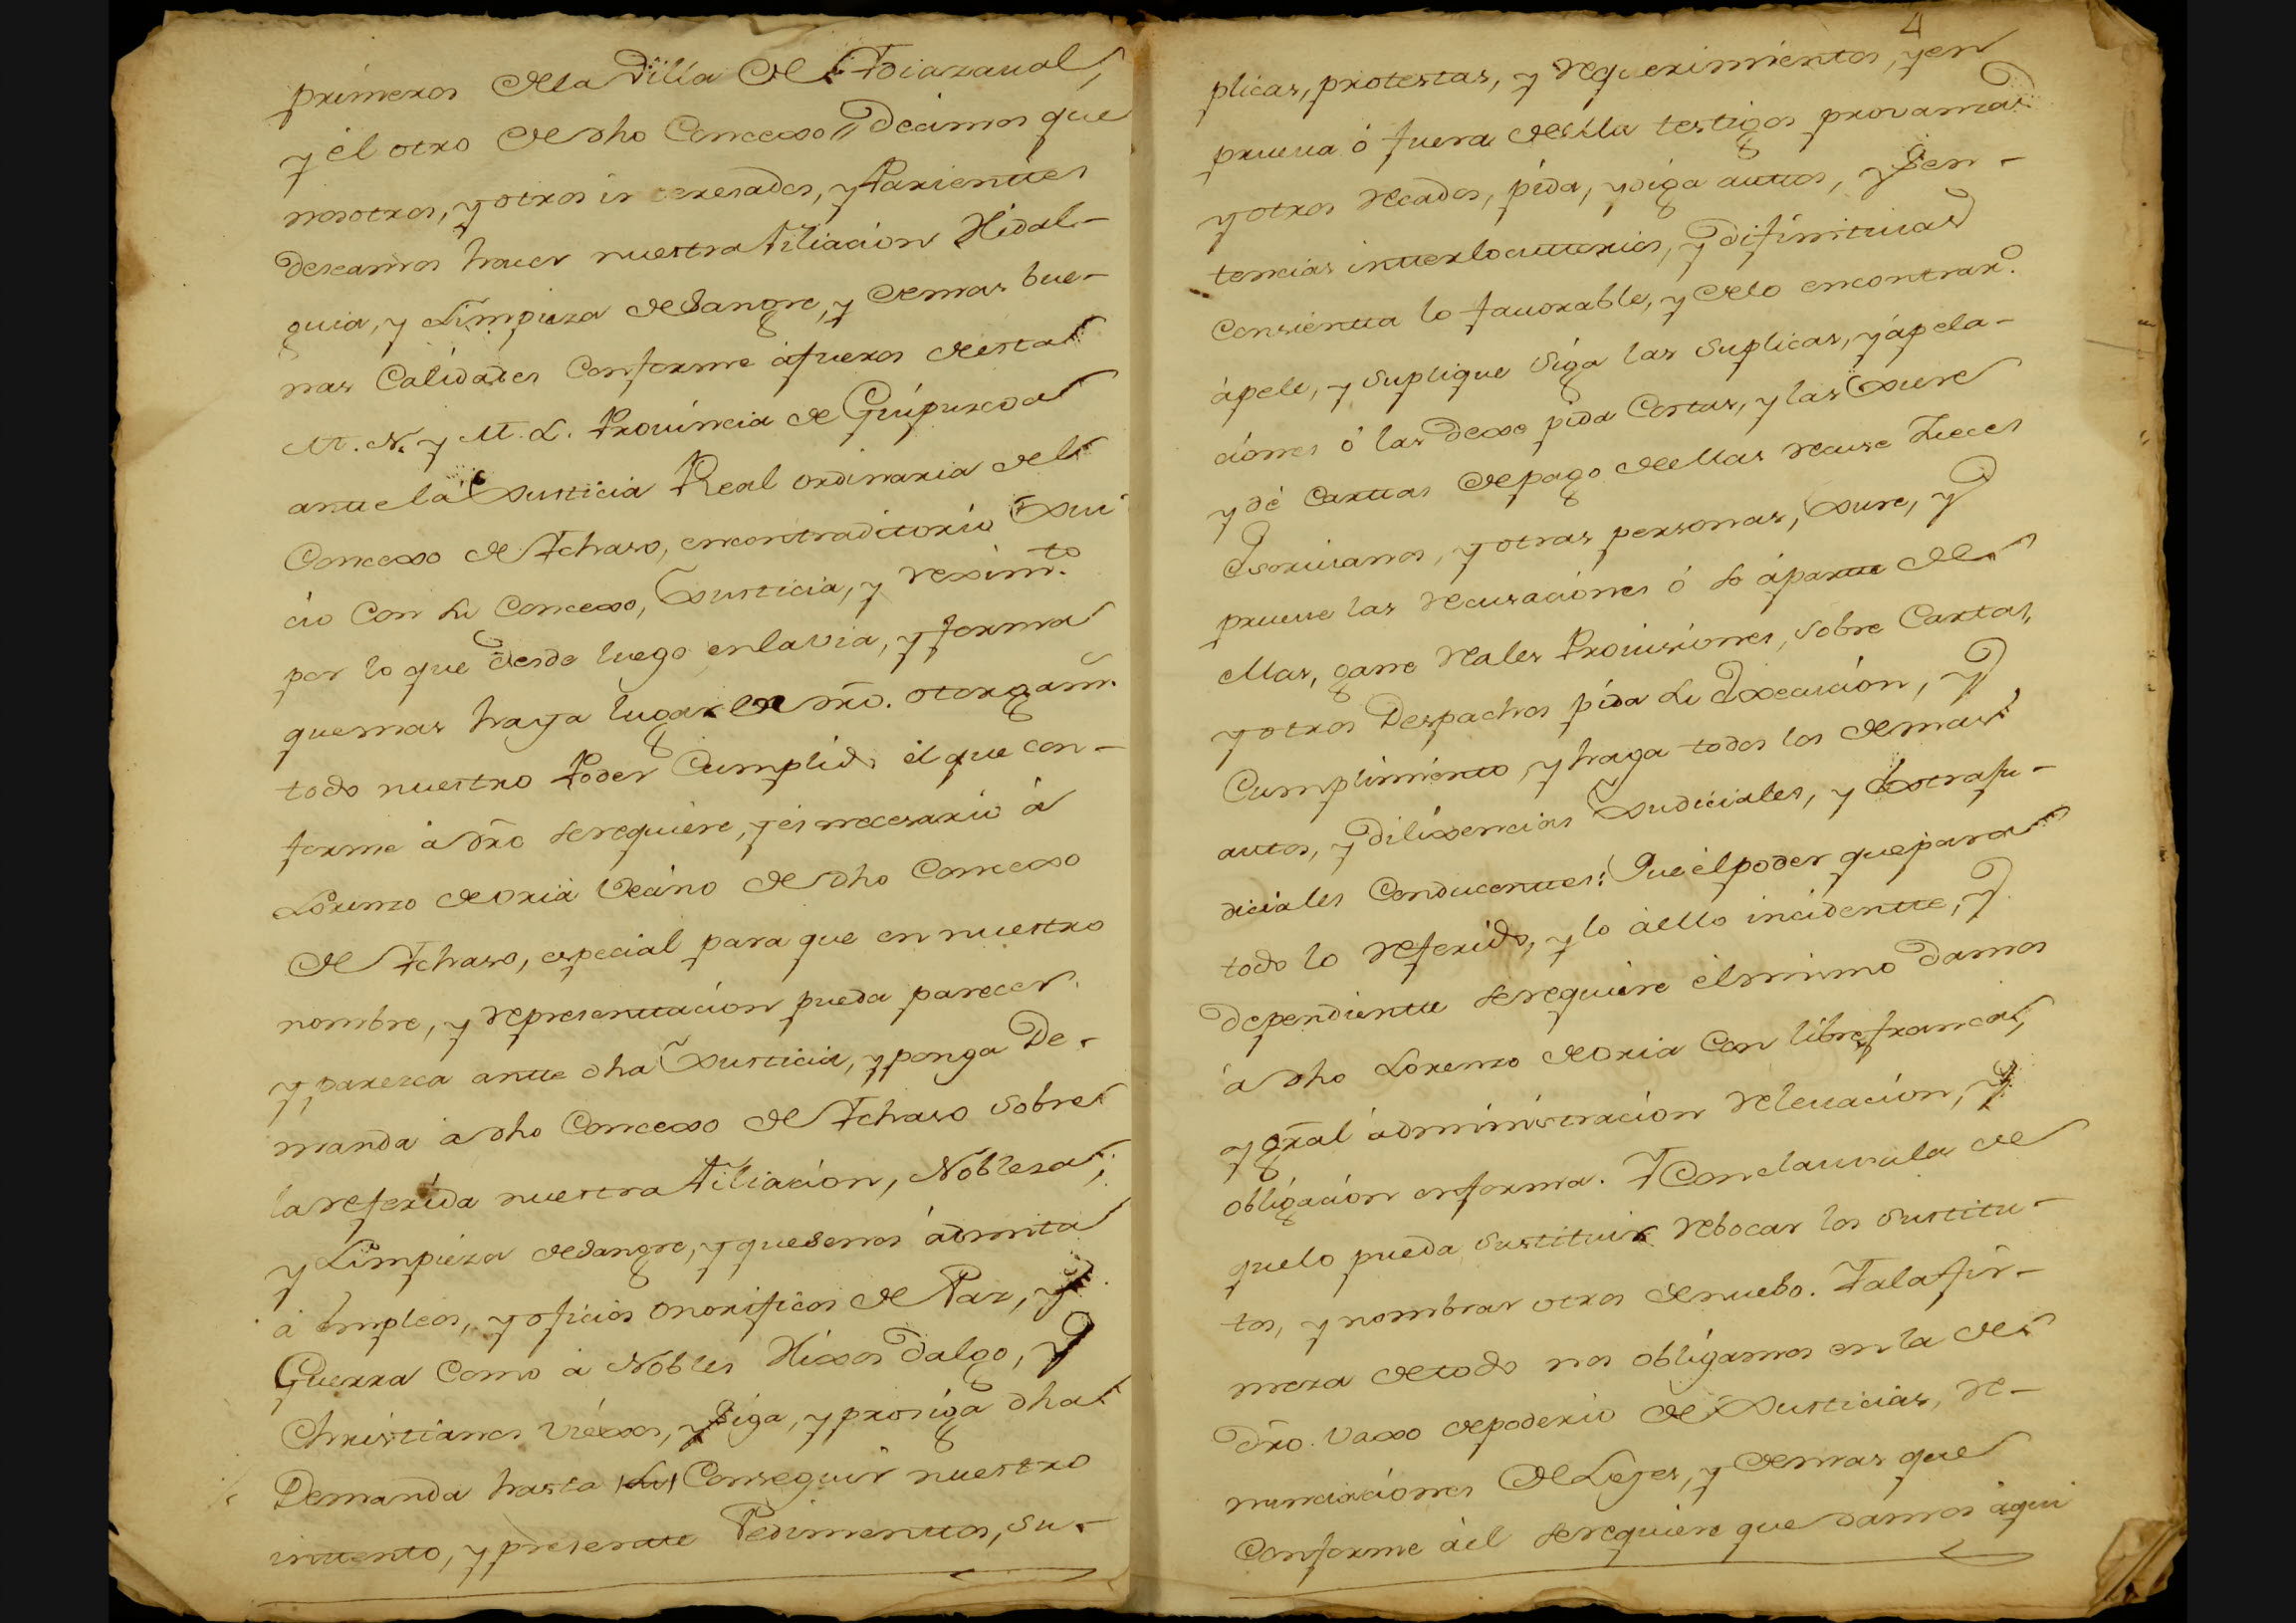 primeros de la Villa de Ydiazaual,
y el otro de dho Concexo, decimos que
nosotros, y otros interesados, y Parientes
deseamos hacer nuestra filiacion Hidal-
guia, y Limpieza de Sangre, y demas bue-
nas Calidades Conforme à fueros de esta
M. N. y M. L. Prouincia de Guipuzcoa
antte la Justicia Real ordinaria del
Concexo de Achaso, en contraditorio Jui
cio Con su Concexo, Justicia, y reximto.
por lo que desde luego en la via, y forma
que mas haya lugar de dro. otorgam.s
todo nuestro Poder Cumplido el que con-
forme à dro se requiere, y es necesario à
Lorenzo de Oria Vecino de dho Concexo
de Achaso, especial para que en nuestro
nombre, y representtacion pueda parecer,
y parezca antte dha Justicia, y ponga De-
manda à dho Concexo de Achaso sobre
la referida nuestra filiacion, Nobleza,
y Limpieza de Sangre, y que se nos admita
à Empleos, y oficios onorificos de Paz, y
Guerra Como à Nobles Hixos dalgo, y
Christianos viexos, y siga, y prosiga dha
Demanda hasta (su) Conseguir nuestro
inttento, y presentte Pedimenttos, su-
4
plicas, protestas, y requerimientos, y en
prueua ò fuera de ella testigos prouanzas
y otros recados, pida, y oiga auttos, y sen-
tencias intterlocuttorias, y difinitiuas
Consientta lo fauorable, y de lo en contraro.
àpele, y suplique siga las suplicas, y àpela-
ciones ò las dexe pida Costas, y las Jure
y dè Carttas de pago de ellas recuse Jueces
Escriuanos, y otras personas, Jure, y
prueue las recusaciones ò se àpartte de
ellas, gane reales Prouisiones, sobre Cartas,
y otros Despachos pida su Execucion, y
Cumplimientto, y haga todos los demas
auttos, y dilixencias Judiciales, y Extraju-
diciales Conducenttes: Que èl poder que para
todo lo referido, y lo à ello incidentte, y
dependientte se requiere èl mismo damos
à dho Lorenzo de Oria Con libre franca,
y gral àdministracion releuacion, y
obligacion en forma. Y Con clausula de
que lo pueda sustituir rebocar los sustitu-
tos, y nombrar otros de nuebo. Y a la fir-
meza de todo nos obligamos en la de
dro. vaxo de poderio de Justicias, re-
nunciaciones de Leyes, y demas que
Conforme à el se requiere que damos aqui